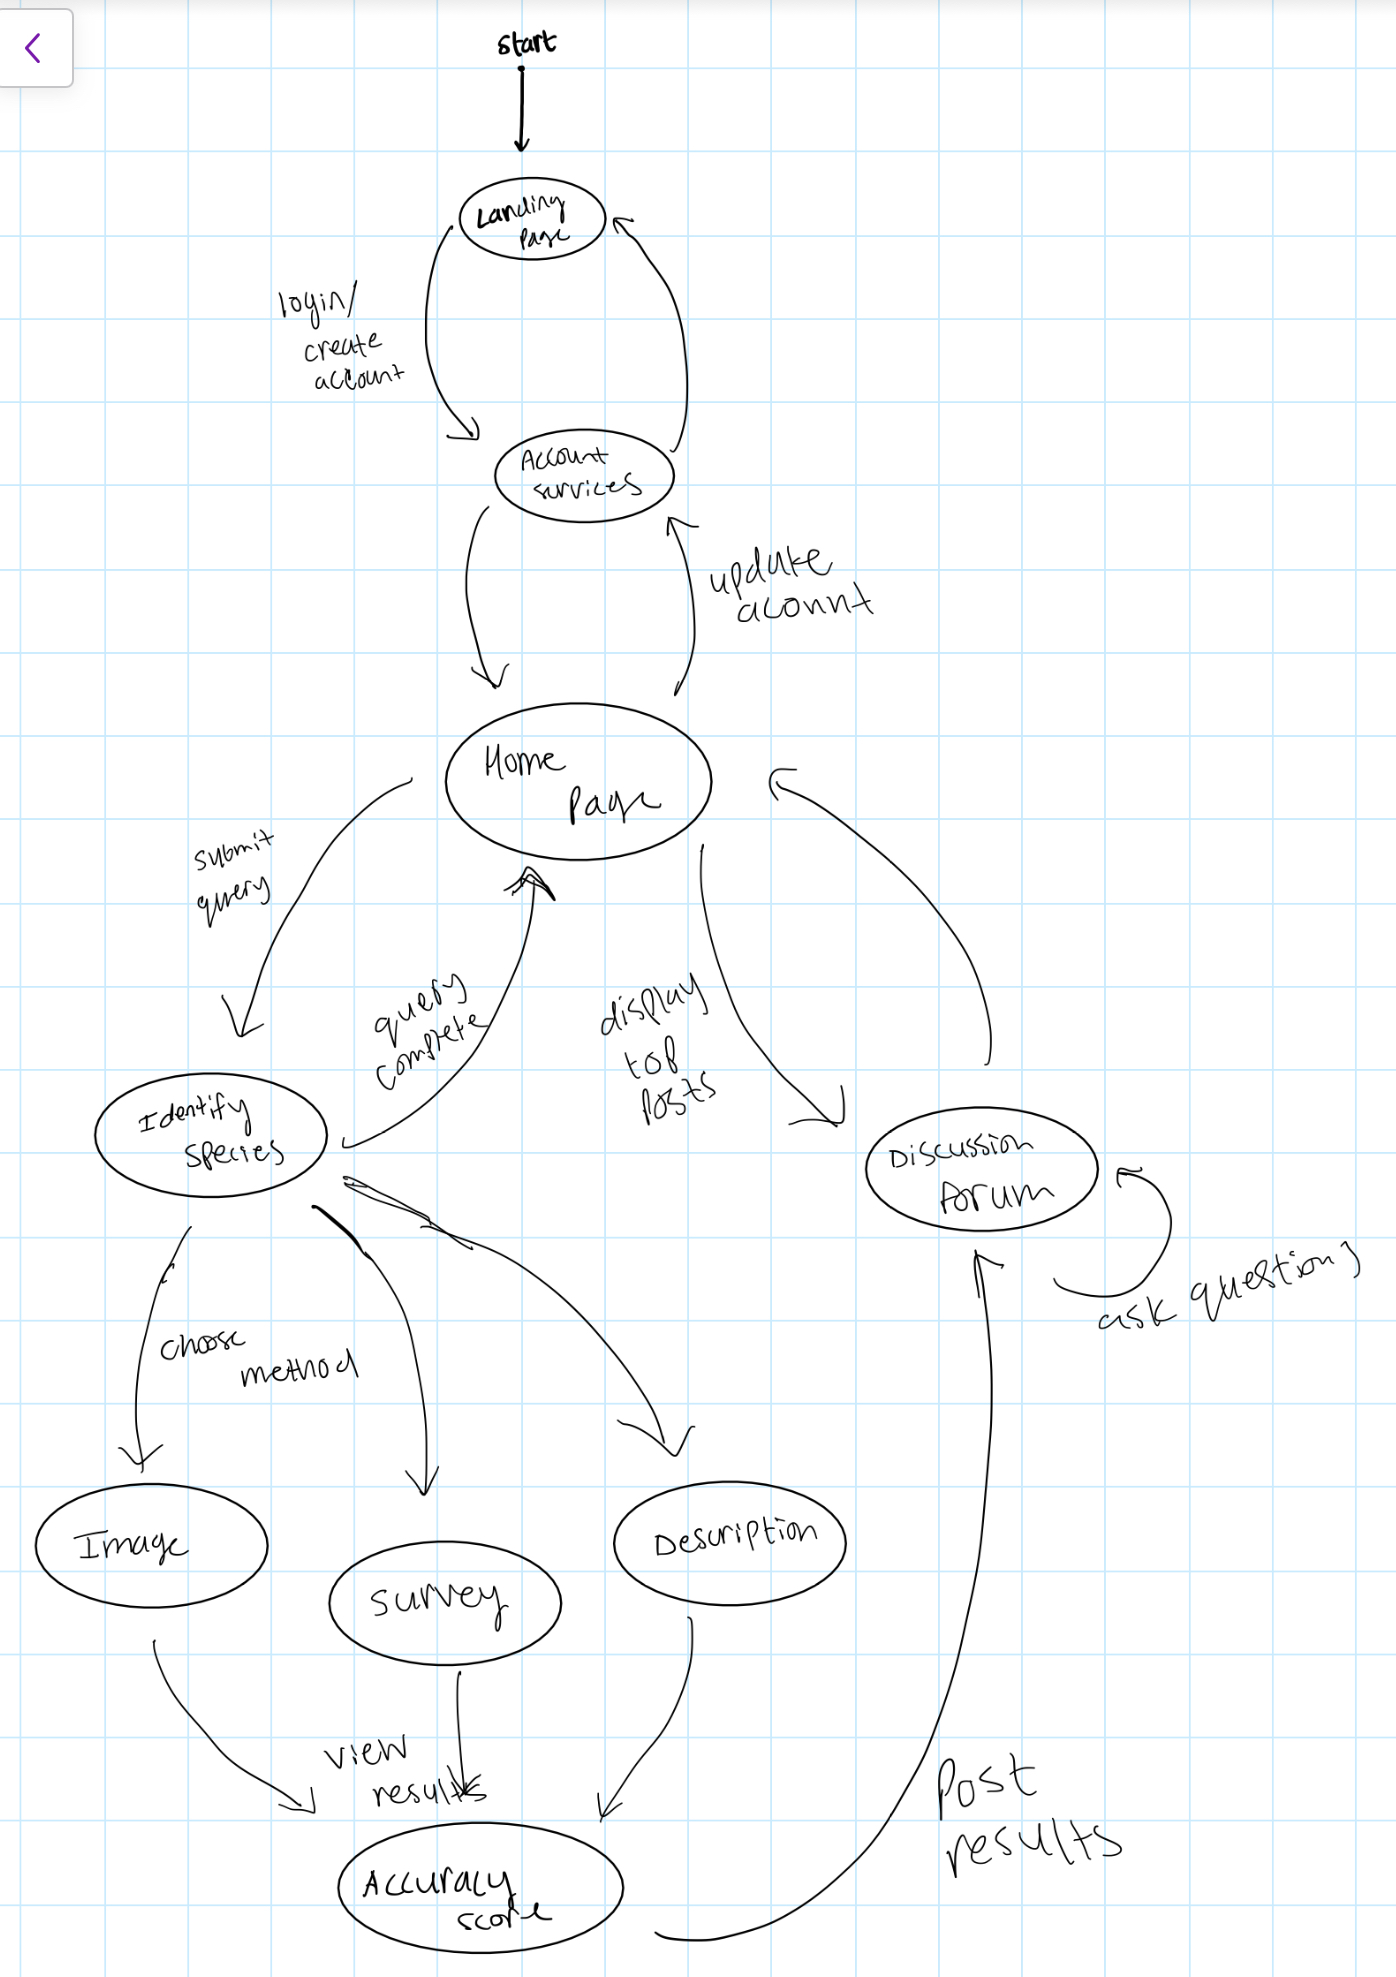 start
Landing
Page
login/
create
account
Account
services
update
acount
Home
Page
submit
query
query
complete
display
top
posts
Identify
species
Discussion
forum
ask questions
choose
method
Image
Survey
Description
view
results
Post
results
Accuracy
score